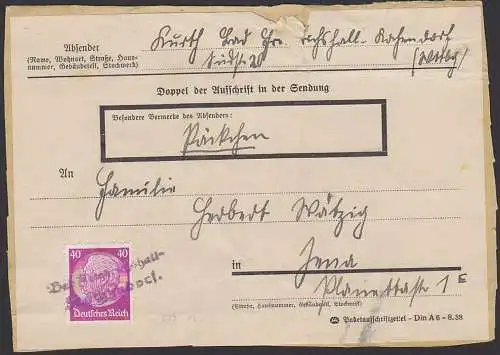 Absender
(Name, Wohnort, Straße, Haus-
nummer, Gebäudeteil, Stockwerk)
Kurth Bad Kochendorf
Südstr. 28
(Wttbg)
Doppel der Aufschrift in der Sendung
Besondere Vermerke des Absenders:
Päckchen
An
Familie
Herbert Wätzig
in Jena
Planettastr 1 E
(Straße, Hausnummer, Gebäudeteil, Stockwerk)
40 40
Deutsches Reich
Paketaufschriftzettel - Din A 6 - 8.38